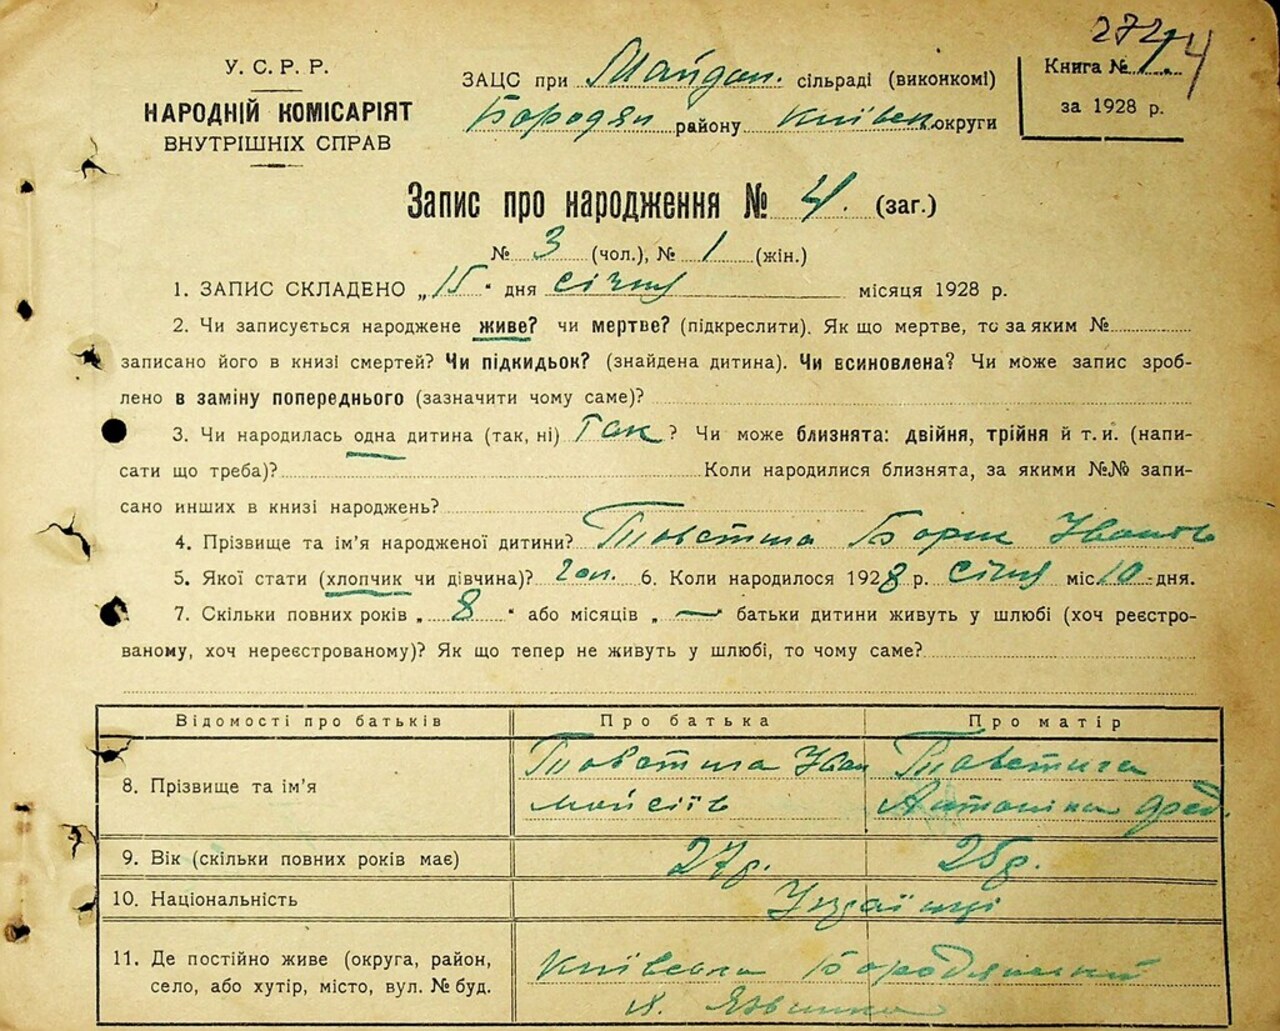 У. С. Р. Р.
НАРОДНІЙ КОМІСАРІЯТ
ВНУТРІШНІХ СПРАВ
ЗАЦС при Майдан. сільраді (виконкомі)
Бородян району Київськ. округи
Книга №
за 1928 р.
Запис про народження № 4. (заг.)
№ 3 (чол.), № 1 (жін.)
1. ЗАПИС СКЛАДЕНО „15" дня січня місяця 1928 р.
2. Чи записується народжене живе? чи мертве? (підкреслити). Як що мертве, то за яким №
записано його в книзі смертей? Чи підкидьок? (знайдена дитина). Чи всиновлена? Чи може запис зроб-
лено в заміну попереднього (зазначити чому саме)?
3. Чи народилась одна дитина (так, ні) Так? Чи може близнята: двійня, трійня й т. и. (напи-
сати що треба)? Коли народилися близнята, за якими №№ запи-
сано инших в книзі народжень?
4. Прізвище та ім'я народженої дитини? Борис Іванов
5. Якої стати (хлопчик чи дівчина)? 6. Коли народилося 1928 р. січня міс. 10 дня.
7. Скільки повних років „8" або місяців „—" батьки дитини живуть у шлюбі (хоч реєстро-
ваному, хоч нереєстрованому)? Як що тепер не живуть у шлюбі, то чому саме?
Відомості про батьків Про батька Про матір
8. Прізвище та ім'я Іван
Мойсіїв
9. Вік (скільки повних років має) 27р.
10. Національність Українці
11. Де постійно живе (округа, район,
село, або хутір, місто, вул. № буд.
Київська Бородянський